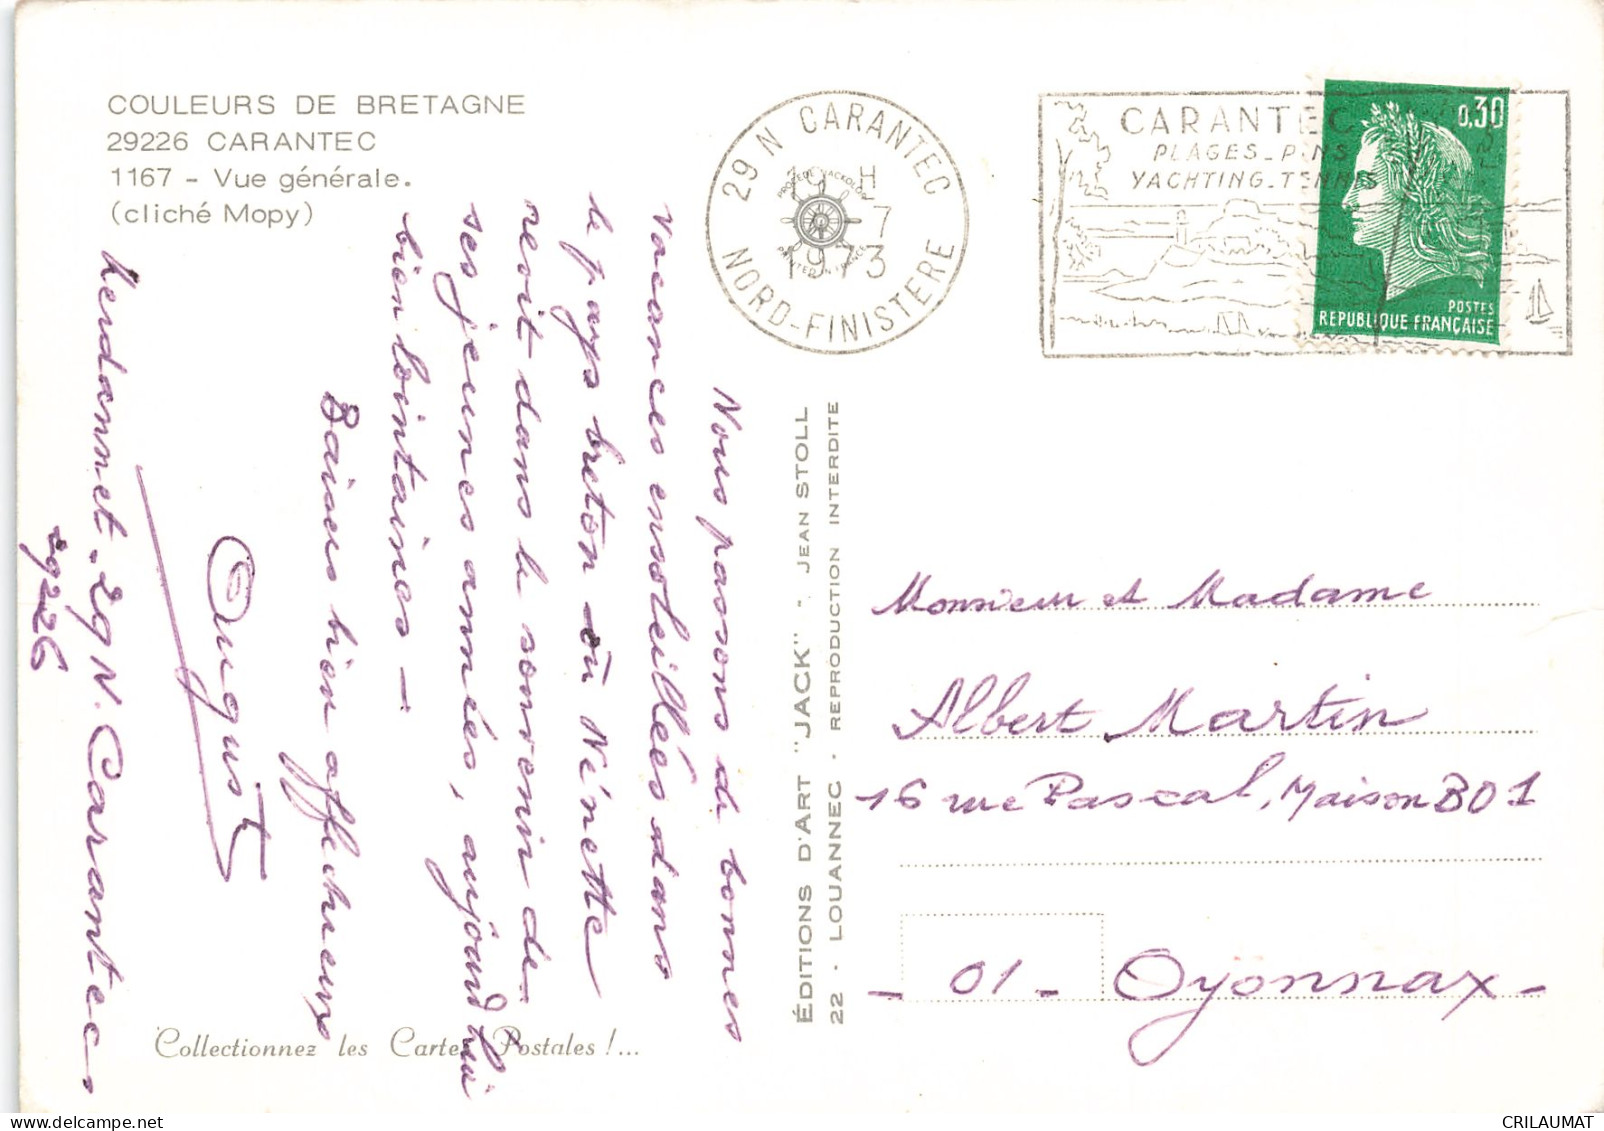 COULEURS DE BRETAGNE
29226 CARANTEC
1167 - Vue générale.
(cliché Mopy)
29 N CARANTEC
19 H
- 7
1973
NORD-FINISTERE
CARANTEC
PLAGES_PINS
YACHTING_TENNIS
0,30
POSTES
REPUBLIQUE FRANÇAISE
Nous passons de bonnes
vacances ensoleillées dans
le pays breton où Nénette
revit dans le souvenir de
ses jeunes années, aujourd'hui
bien lointaines -
Baisers bien affectueux
August
Kerdannet - 29 N. Carantec
29226
ÉDITIONS D'ART "JACK" - JEAN STOLL
22 - LOUANNEC - REPRODUCTION INTERDITE
Monsieur et Madame
Albert Martin
16 rue Pascal, Maison B01
- 01 - Oyonnax -
Collectionnez les Cartes Postales !...
CRILAUMAT